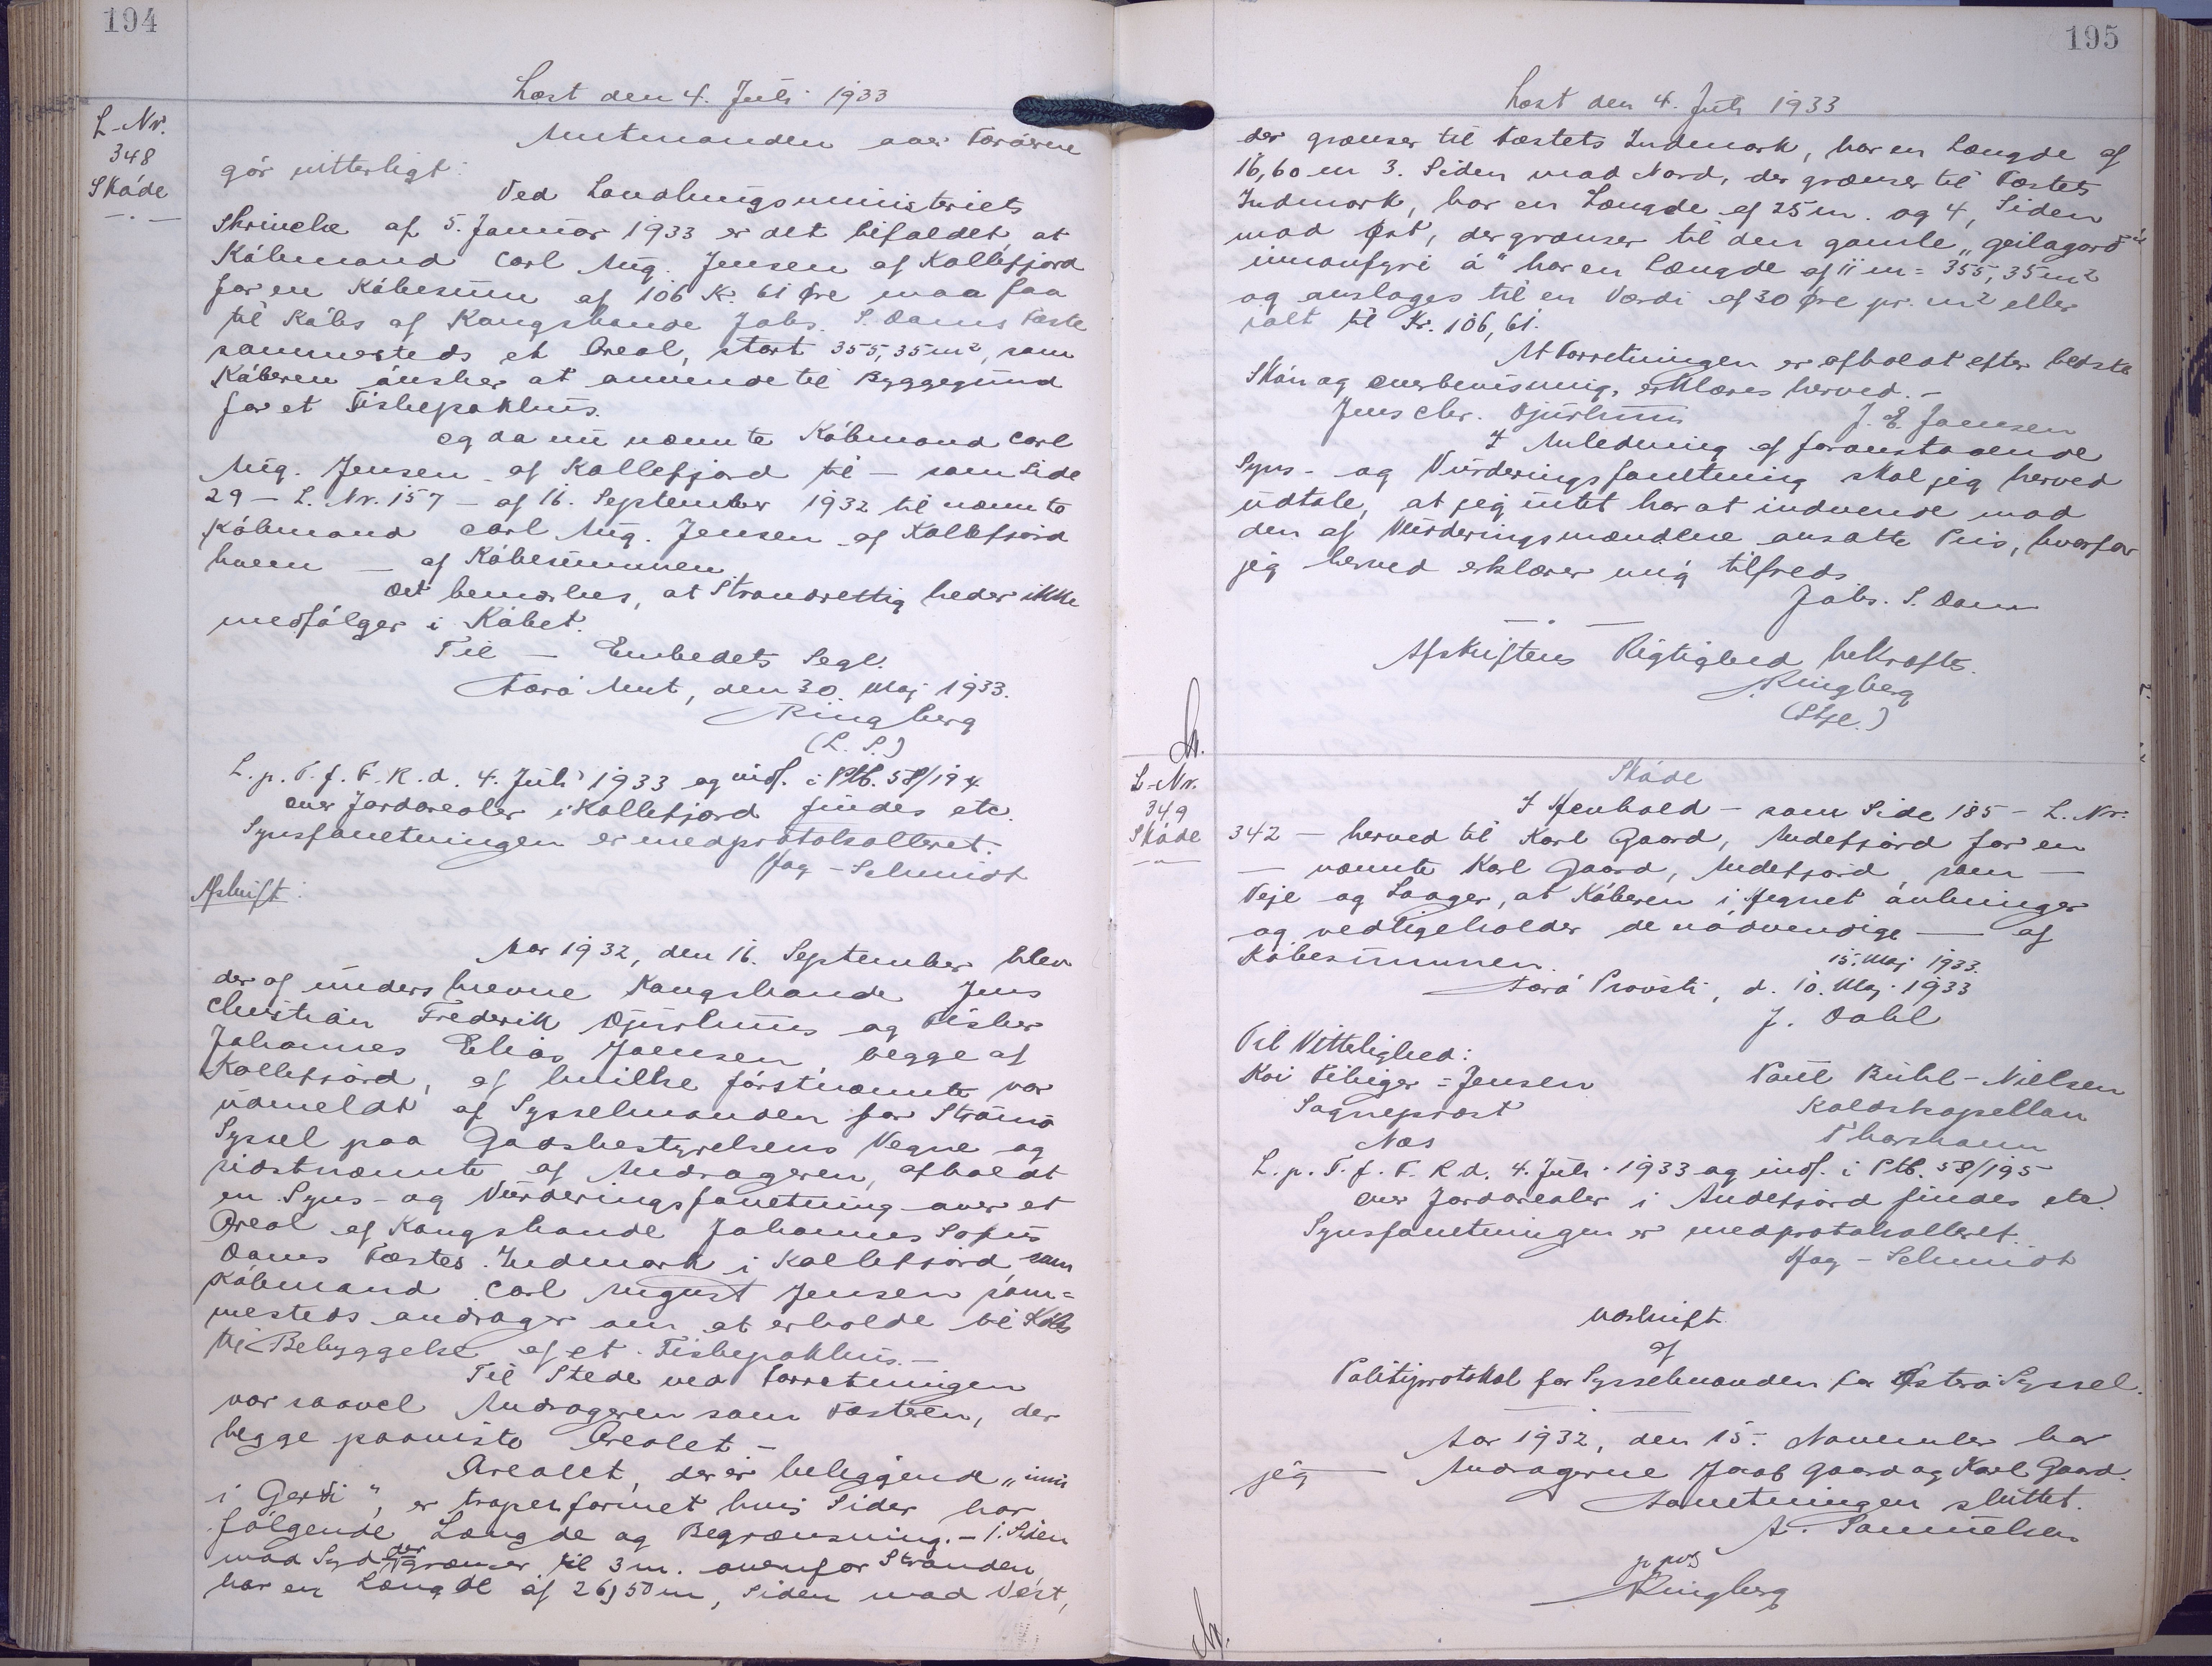 194
Læst den 4. Juli 1933
L-Nr.
348
Skóde
Amtmanden over Færøerne
gör vitterligt:
Ved Landbrugsministeriets
Skrivelse af 5. Januar 1933 er det bifaldet, at
Købmand Carl Aug. Jensen af Kollefjord
for en Købesum af 106 Kr. 61 Øre maa faa
til Købs af Kongsbonde Johs. S. Dams Fæste
sammesteds et Areal, stort 355,35 m², som
Køberen ønsker at anvende til Byggegrund
for et Fiskepakhus.
og da nu nævnte Købmand Carl
Aug. Jensen af Kollefjord til — som Side
29 — L. Nr. 157 — af 16. September 1932 til nævnte
Købmand Carl Aug. Jensen af Kollefjord
hvem — af Købesummen.
Det bemærkes, at Strandrettigheder ikke
medfølger i Købet.
Til — Embedets Segl.
Færø Amt, den 30. Maj 1933.
Ringberg
(L. S.)
L. p. T. f. F. R. d. 4. Juli 1933 og indf. i Ptb. 58/194
over Jordarealer i Kollefjord findes etc.
Synsforretningen er medprotokolleret.
Hag-Schmidt
Afskrift:
Aar 1932, den 16. September blev
der af underskrevne Kongsbonde Jens
Christian Frederik Djurhuus og Fisker
Johannes Elias Joensen begge af
Kollefjord, af hvilke förstnævnte var
udmeldt af Sysselmanden for Strømø
Syssel paa Godsbestyrelsens Vegne og
sidstnævnte af Andrageren, afholdt
en Syns- og Vurderingsforretning over et
Areal af Kongsbonde Johannes Sofus
Dams Fæstes Indmark i Kollefjord, som
Købmand Carl August Jensen sam=
mesteds andrager om at erholde til Købs
til Bebyggelse af et Fiskepakhus.—
Til Stede ved Forretningen
var saavel Andrageren som Fæsteren, der
begge paaviste Arealet —
Arealet, der er beliggende „inni
i Gerði", er trapezformet hvis Sider har
følgende Længde og Begrænsning. — 1. Siden
mod Syd der grænser til 3 m. ovenfor Stranden
har en Længde af 26,50 m, Siden mod Vest,
195
Læst den 4. Juli 1933
der grænser til Fæstets Indmark, har en Længde af
16,60 m 3. Siden mod Nord, der grænser til Fæstets
Indmark, har en Længde af 25 m. og 4, Siden
mod Øst, der grænser til den gamle „geilagarð
innanfyri á" har en Længde af 11 m = 355,35 m²
og anslages til en Værdi af 30 Øre pr. m² eller
ialt til Kr. 106,61.
At Forretningen er afholdt efter bedste
Skön og Overbevisning, erklæres herved. —
Jens Chr. Djurhuus J. E. Joensen
I Anledning af foranstaaende
Syns- og Vurderingsforretning skal jeg herved
udtale, at jeg intet har at indvende mod
den af Vurderingsmændene ansatte Pris, hvorfor
jeg herved erklærer mig tilfreds
Johs. S. Dam
Afskriftens Rigtighed bekræftes.
Ringberg
L-Nr.
349
Skóde
Skóde
I Henhold — som Side 185 — L. Nr.
342 — herved til Karl Gaard, Andefjord for en
— nævnte Karl Gaard, Andefjord, som —
Veje og Laager, at Køberen i Hegnet anbringer
og vedligeholder de nødvendige — af
Købesummen.
15. Maj 1933.
Færø Provsti, d. 10. Maj 1933
J. Dahl
Til Vitterlighed:
Kai Fibiger-Jensen Poul Buhl-Nielsen
Sognepræst Kaldskapellan
Næs Thorshavn
L. p. T. f. F. R. d. 4. Juli 1933 og indf. i Ptb. 58/195
over Jordarealer i Andefjord findes etc.
Synsforretningen er medprotokolleret.
Hag-Schmidt
Udskrift
af
Politiprotokol for Sysselmanden for Østerø Syssel.
Aar 1932, den 15. November har
jeg — Andragerne Jacob Gaard og Karl Gaard.
Forretningen sluttet.
A. Samuelsen
Ringberg